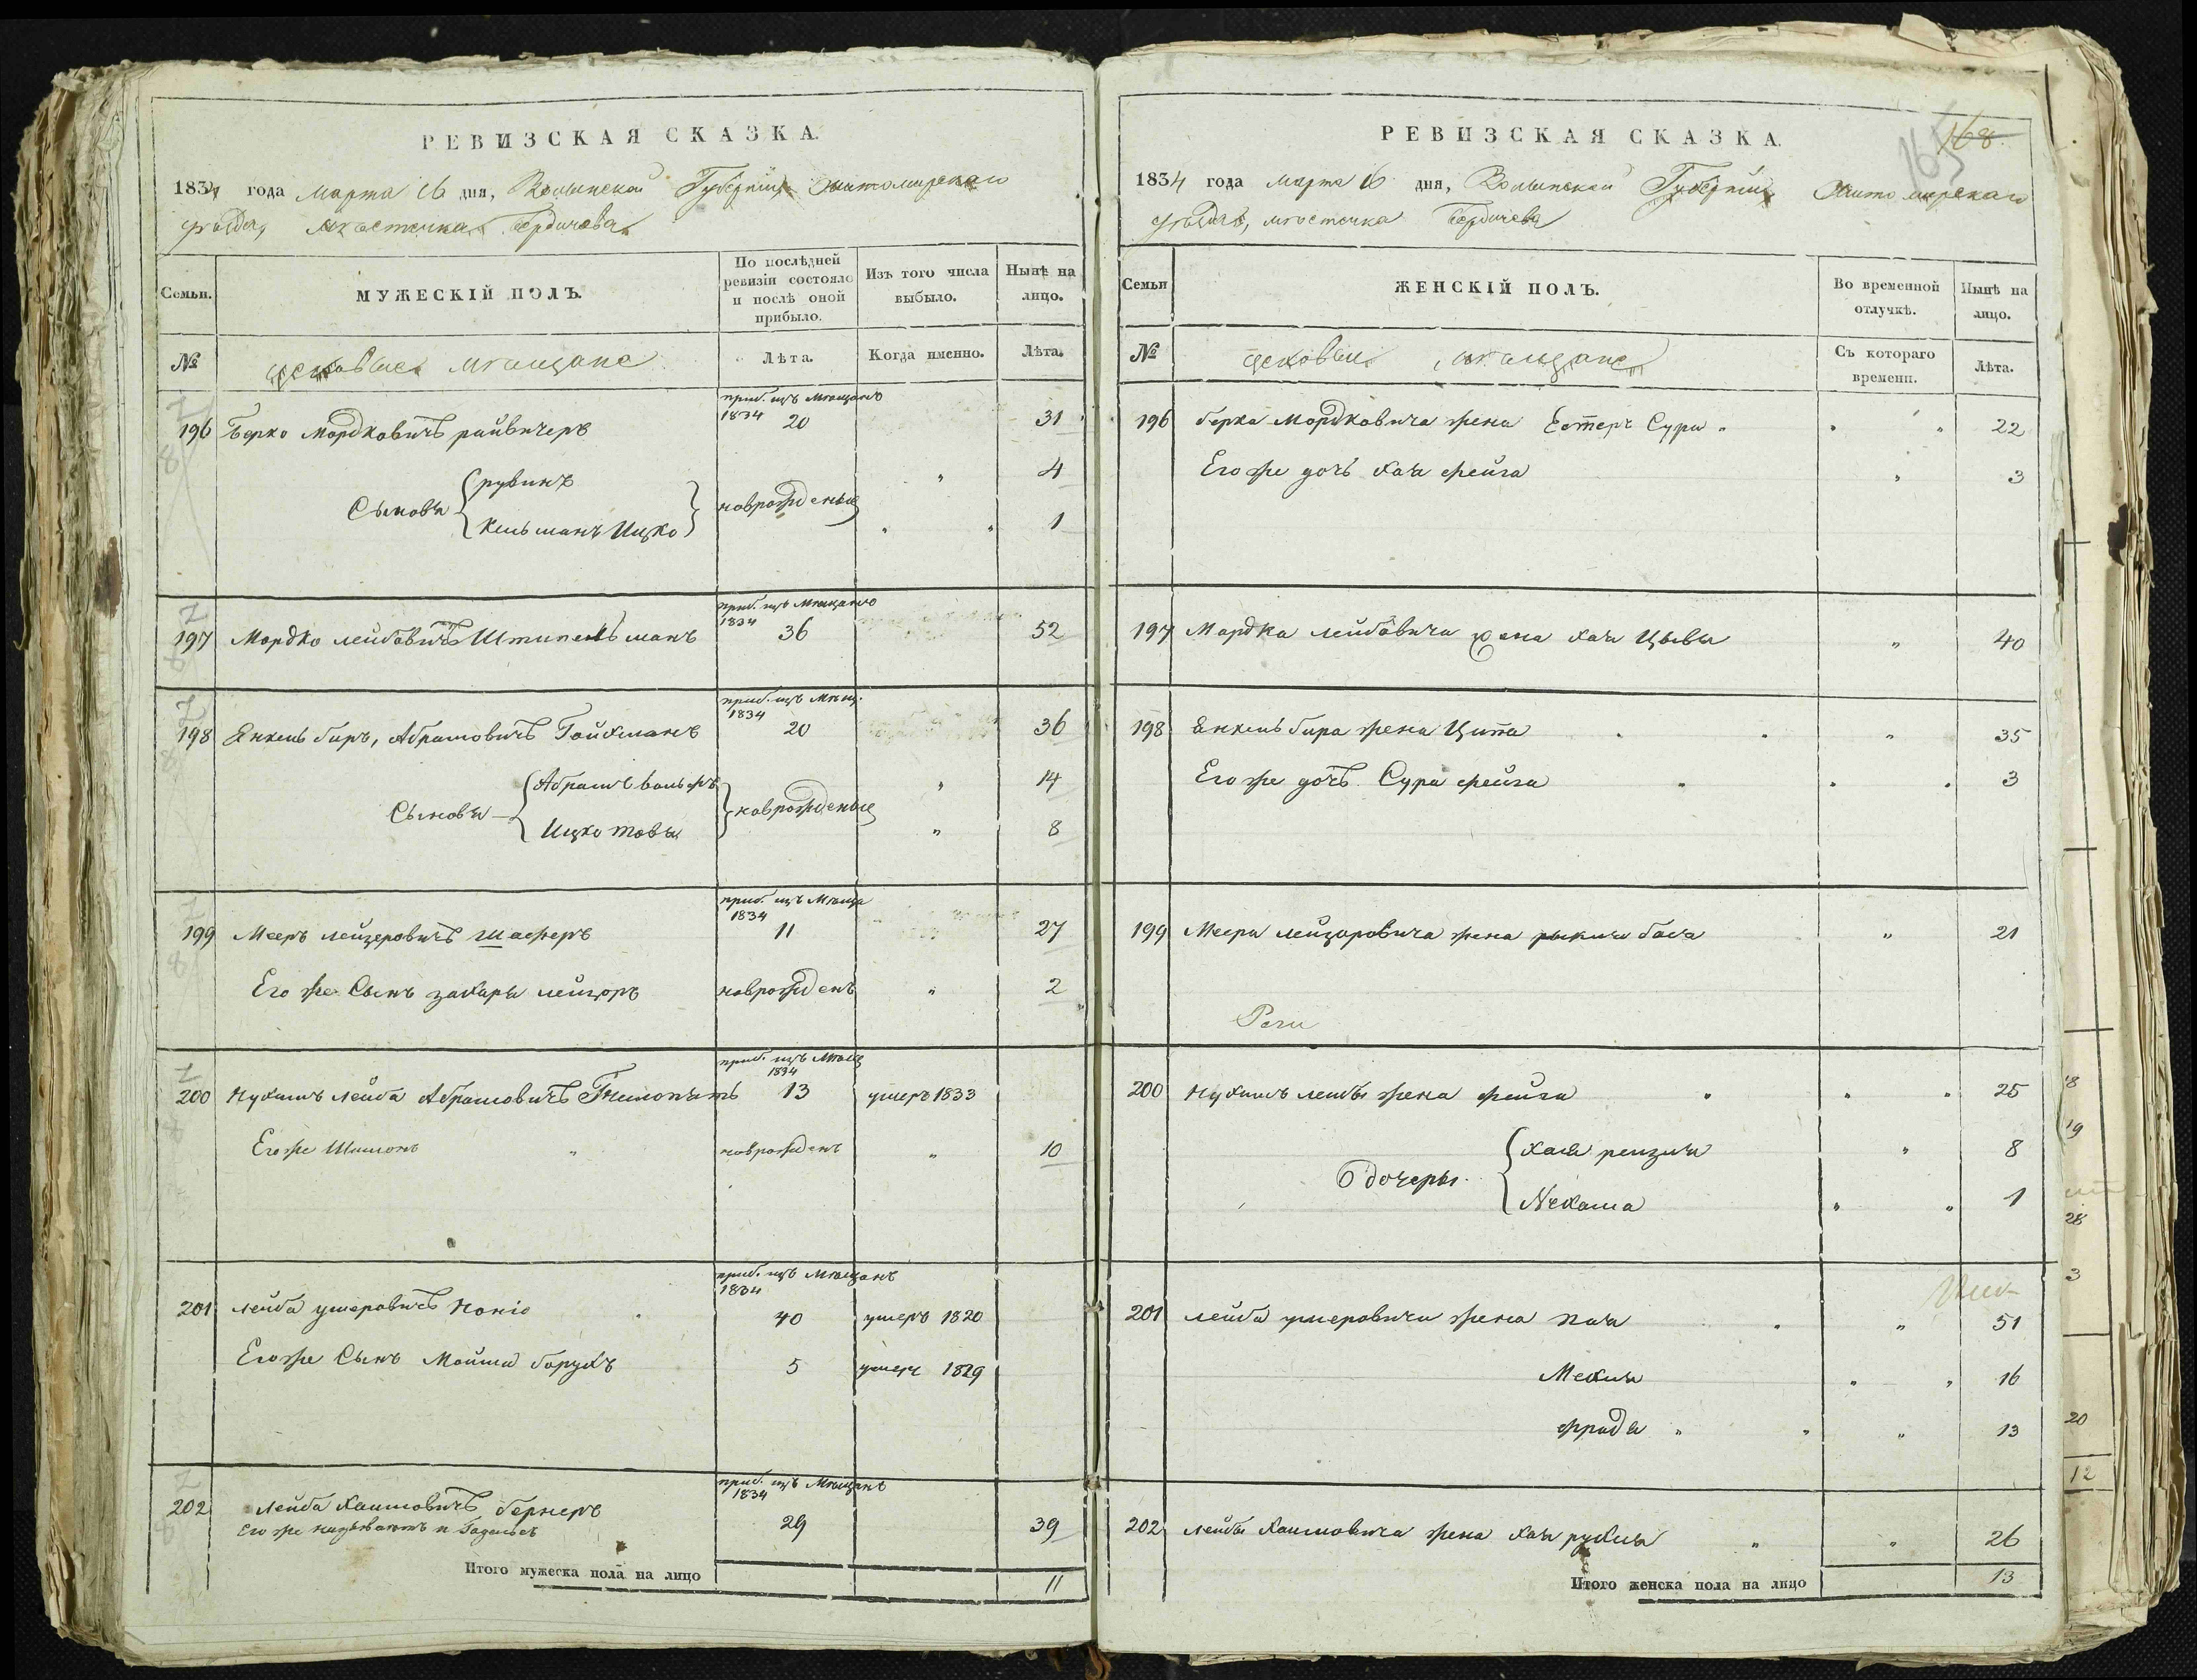 РЕВИЗСКАЯ СКАЗКА.
1834 года марта 16 дня, Волынской Губерніи, Житомирскаго
уѣзда, мѣстечка Бердичева
Семьи.
МУЖЕСКІЙ ПОЛЪ.
По послѣдней ревизіи состояло и послѣ оной прибыло.
Изъ того числа выбыло.
Нынѣ на лицо.
№
цеховые мѣщане
Лѣта.
Когда именно.
Лѣта.
приб. изъ мѣщанъ
1834
196 Берко Мордковичъ райвичеръ 20 31
Сыновья
рувинъ 4
новрожденые
Кельманъ Ицко 1
приб. изъ мѣщанъ
1834
197 Мордко лейбовичъ Штипельманъ 36 52
приб. изъ мѣщ.
1834
198 Янкель биръ, Абрамовичъ Гойхманъ 20 36
Сыновья
Абрамъ вольфъ 14
новрожденые
Ицко това 8
приб. изъ мѣща
1834
199 Мееръ лейзеровичъ шаферъ 11 27
Его же Сынъ захаря лейзоръ новрожденъ 2
приб. изъ мѣщ
1834
200 Нухимъ лейба Абрамовичъ 13 умеръ 1833
Его же Шимонъ новрожденъ 10
приб. изъ мѣщанъ
1834
201 лейба ушеровичъ 40 умеръ 1820
Его же Сынъ Мойша борухъ 5 умеръ 1829
приб. изъ мѣщанъ
1834
202 лейба Хаимовичъ бернеръ 29 39
Его же называютъ и
Итого мужеска пола на лицо 11
165
168
РЕВИЗСКАЯ СКАЗКА.
1834 года марта 16 дня, Волынской Губерніи Житомирскаго
уѣзда, мѣстечка Бердичева
Семьи
ЖЕНСКІЙ ПОЛЪ.
Во временной отлучкѣ.
Нынѣ на лицо.
№
цеховые мѣщане
Съ котораго времени.
Лѣта.
196 берка Мордковича жена Естеръ Сура 22
Его же дочь хая фейга 3
197 Мордка лейбовича жена хая Цывья 40
198 Янкель бира жена Цита 35
Его же дочь Сура фейга 3
199 Меера лейзоровича жена бася 21
200 Нухимъ лейбы жена фейга 25
дочеры
хая рейзля 8
Нехама 1
201 лейба ушеровича жена хая 51
Мехля 16
фрада 13
202 лейбы Хаимовича жена хая рухля 26
Итого женска пола на лицо 13